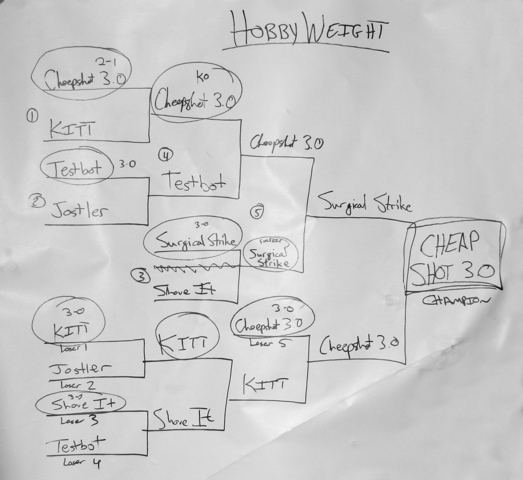 HOBBYWEIGHT
2-1
Cheepshot 3.0
① KITT
Testbot 3-0
② Jostler
KO
Cheepshot 3.0
④
Testbot
3-0
Surgical Strike
③
Shove It
Cheepshot 3.0
⑤
Surgical
Strike
Surgical Strike
CHEAP
SHOT 3.0
CHAMPION
3-0
KITT
Loser 1
Jostler
Loser 2
3-0
Shove It
Loser 3
Testbot
Loser 4
KITT
Shove It
3-0
Cheepshot 3.0
Loser 5
KITT
Cheepshot 3.0